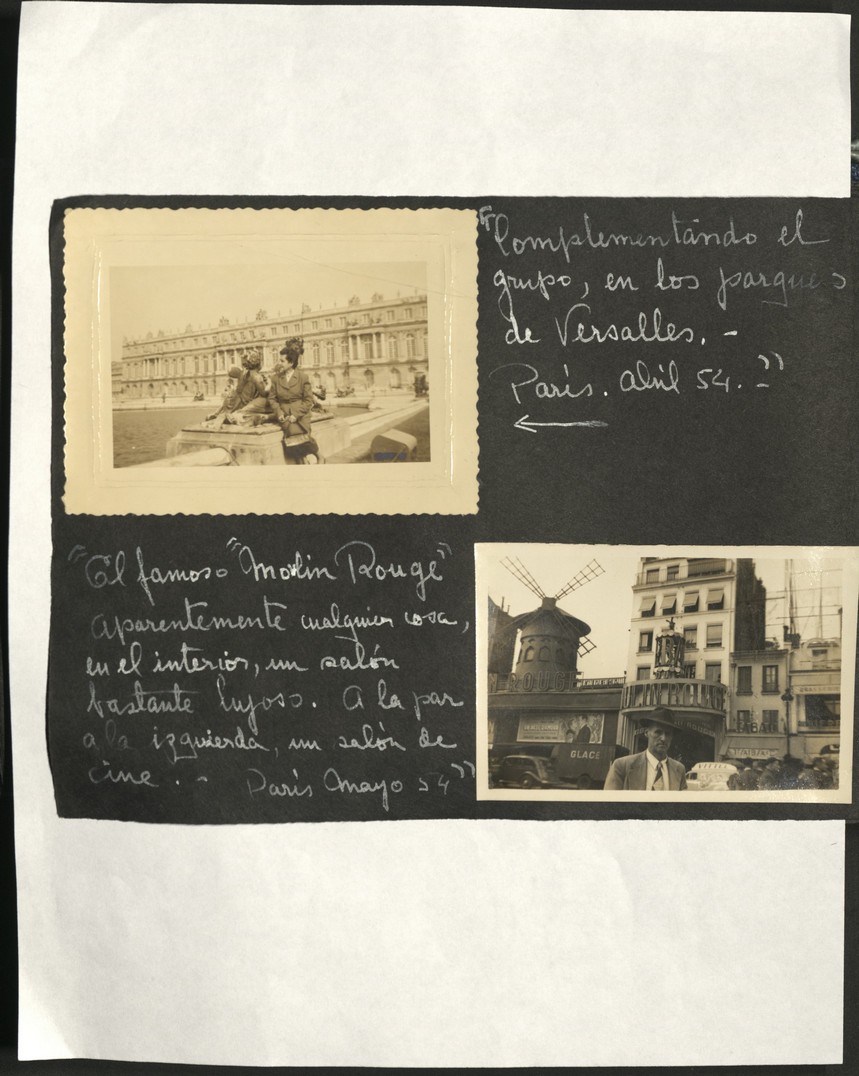 "Complementando el
grupo, en los parques
de Versalles. -
París. Abril 54. -"
"El famoso "Molin Rouge"
aparentemente cualquier cosa,
en el interior, un salón
bastante lujoso. A la par
a la izquierda, un salón de
cine. - París Mayo 54"
ROUGE
GLACE
TABAC
TABAC